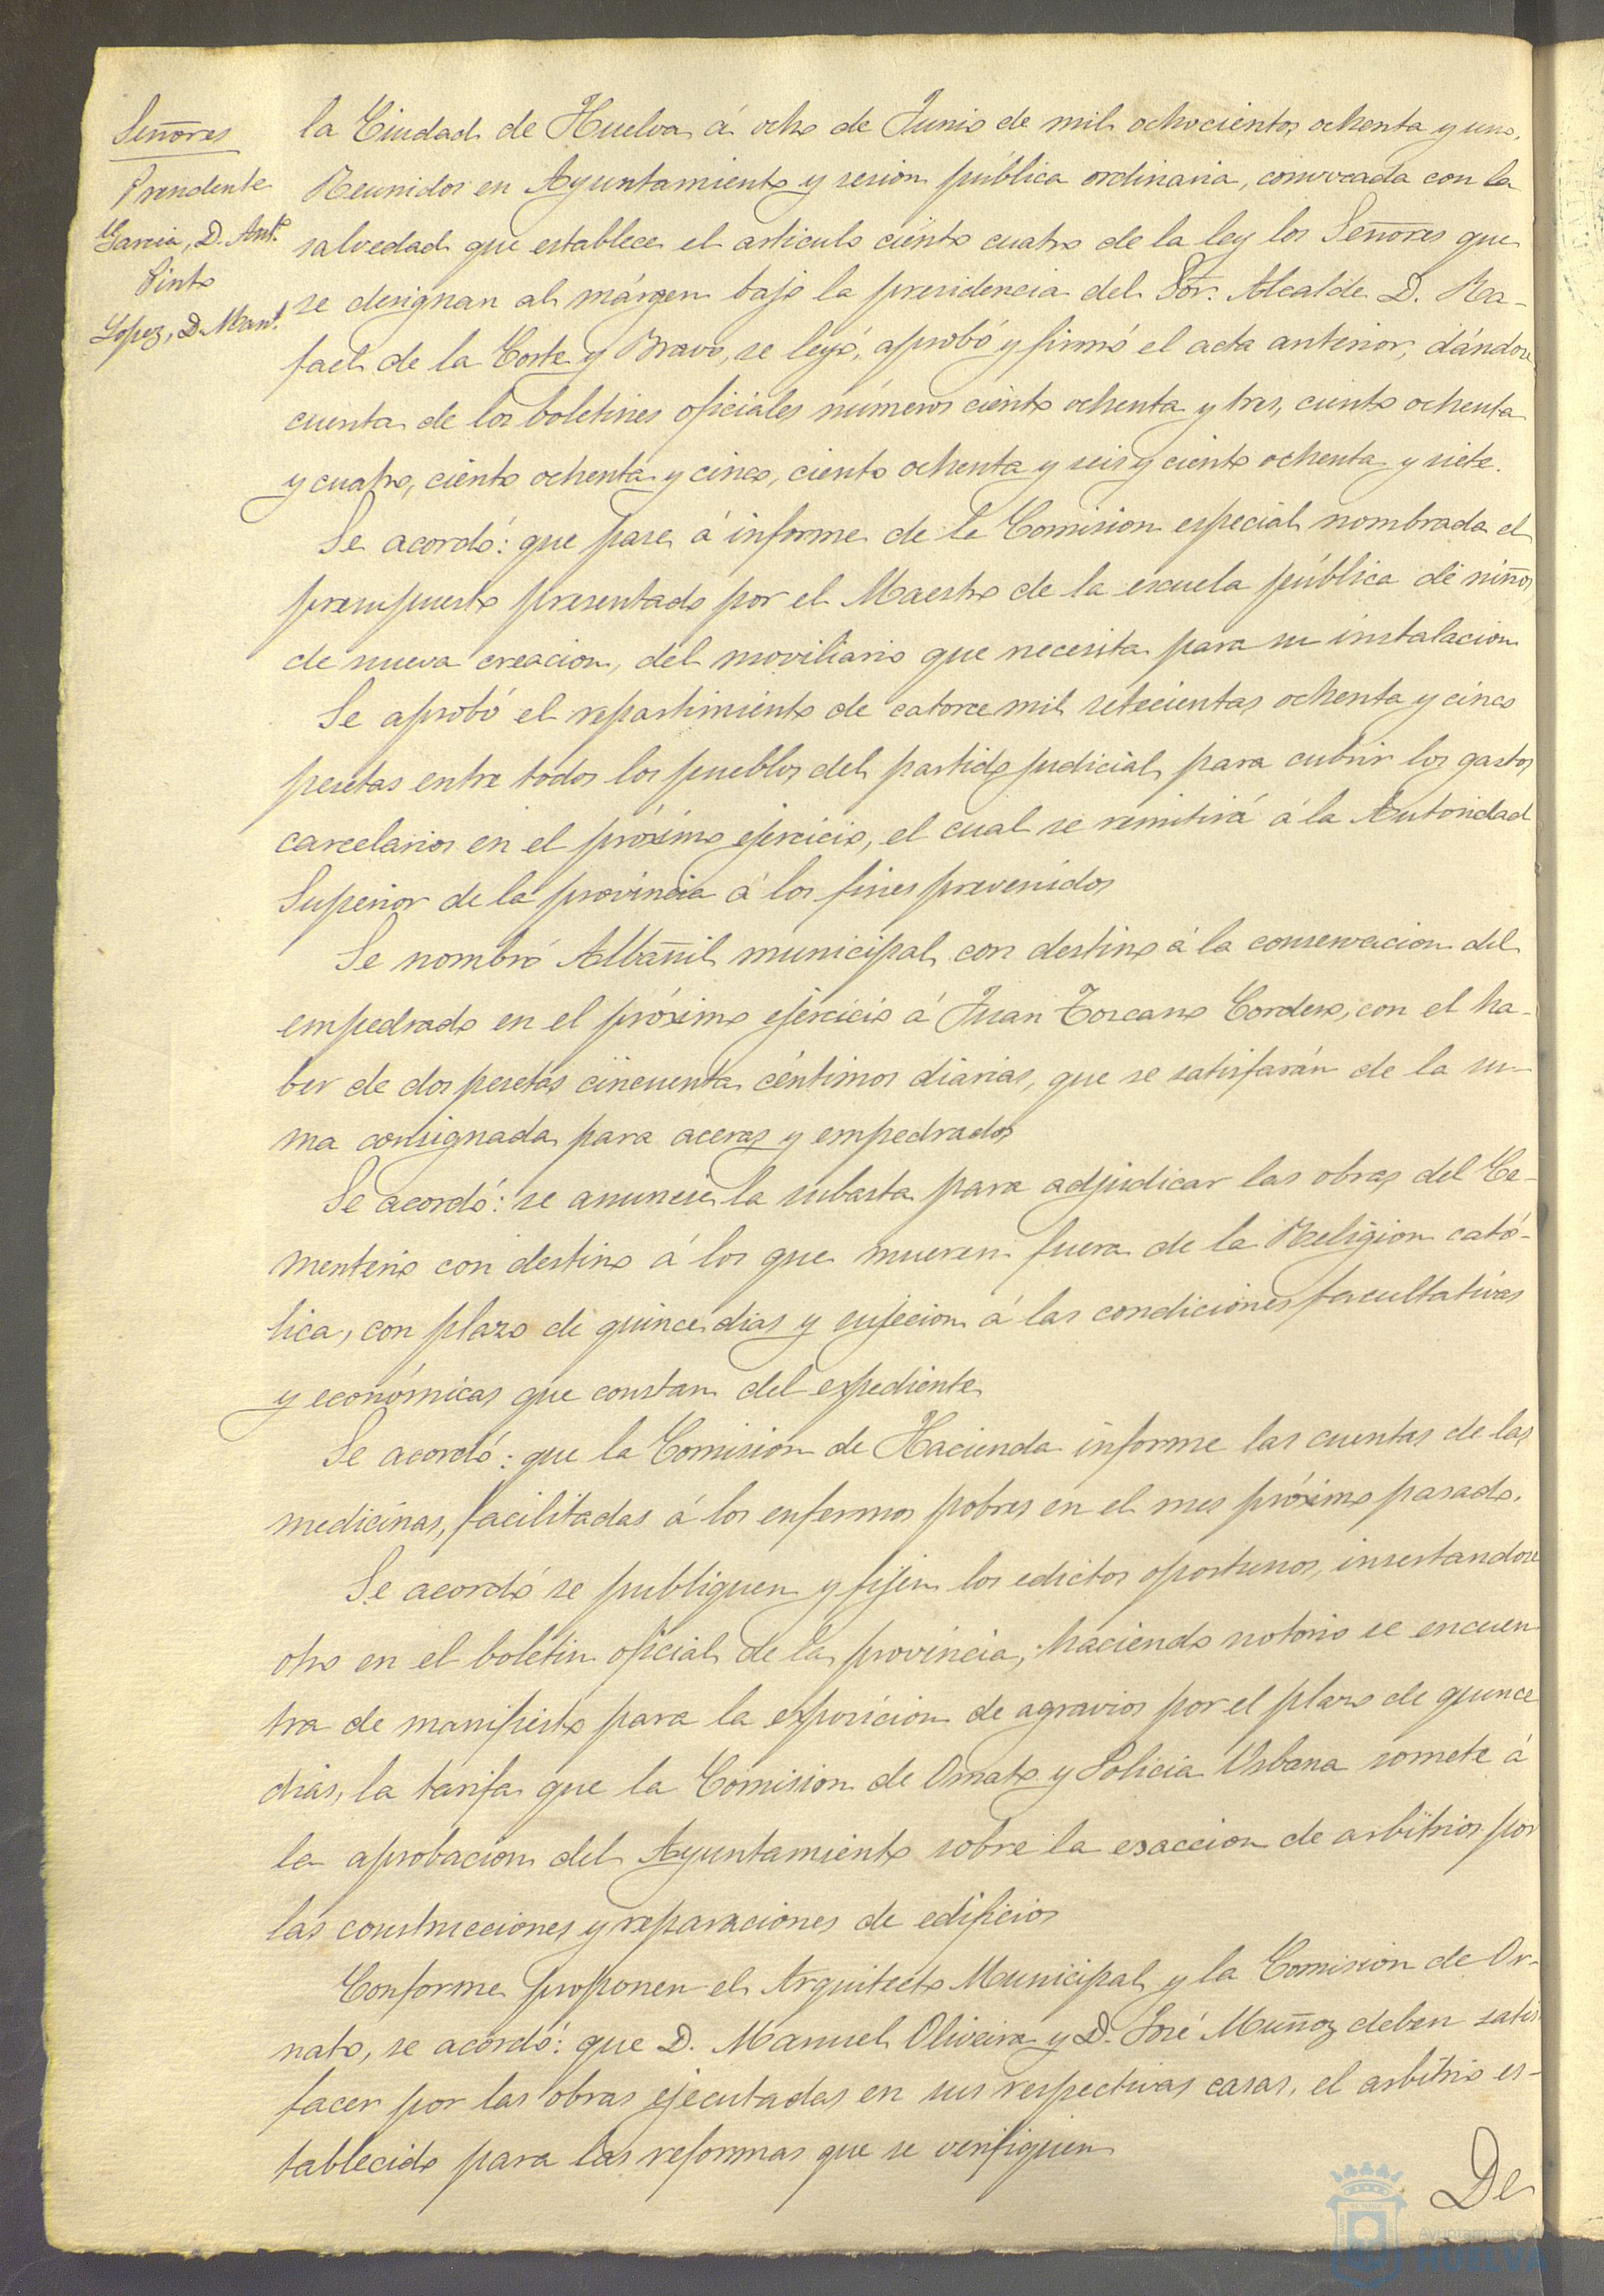 Señores
Presidente
Garcia, D. Ant.º
Pinto
Lopez, D. Man.l
la Ciudad de Huelva á ocho de Junio de mil ochocientos ochenta y uno.
Reunidos en Ayuntamiento y sesion pública ordinaria, convocada con la
salvedad que establece el articulo ciento cuatro de la ley los Señores que
se designan al márgen bajo la presidencia del Sor. Alcalde D. Ra-
fael de la Corte y Bravo, se leyó, aprobó y firmó el acta anterior, dándose
cuenta de los boletines oficiales números ciento ochenta y tres, ciento ochenta
y cuatro, ciento ochenta y cinco, ciento ochenta y seis y ciento ochenta y siete.
Se acordó: que pase á informe de la Comision especial nombrada el
presupuesto presentado por el Maestro de la escuela pública de niños
de nueva creacion, del moviliario que necesita para su instalacion
Se aprobó el repartimiento de catorce mil setecientas ochenta y cinco
pesetas entre todos los pueblos del partido judicial para cubrir los gastos
carcelarios en el próximo ejercicio, el cual se remitirá á la Autoridad
Superior de la provincia á los fines prevenidos
Se nombró Albañil municipal con destino á la conservacion del
empedrado en el próximo ejercicio á Juan Toscano Cordero, con el ha-
ber de dos pesetas cincuenta céntimos diarias, que se satisfarán de la su-
ma consignada para aceras y empedrados
Se acordó: se anuncie la subasta para adjudicar las obras del Ce-
menterio con destino á los que mueren fuera de la Religion cató-
lica, con plazo de quince dias y sujecion á las condiciones facultativas
y económicas que constan del expediente
Se acordó: que la Comision de Hacienda informe las cuentas de las
medicinas, facilitadas á los enfermos pobres en el mes próximo pasado.
Se acordó se publiquen y fijen los edictos oportunos, insertandose
otro en el boletin oficial de la provincia, haciendo notorio se encuen
tra de manifiesto para la exposicion de agravios por el plazo de quince
dias, la tarifa que la Comision de Ornato y Policia Urbana somete á
la aprobacion del Ayuntamiento sobre la exaccion de arbitrios por
las construcciones y reparaciones de edificios
Conforme proponen el Arquitecto Municipal y la Comision de Or-
nato, se acordó: que D. Manuel Oliveira y D. José Muñoz deben satis
facer por las obras ejecutadas en sus respectivas casas, el arbitrio es-
tablecido para las reformas que se verifiquen
De
Ayuntamiento
HUELVA